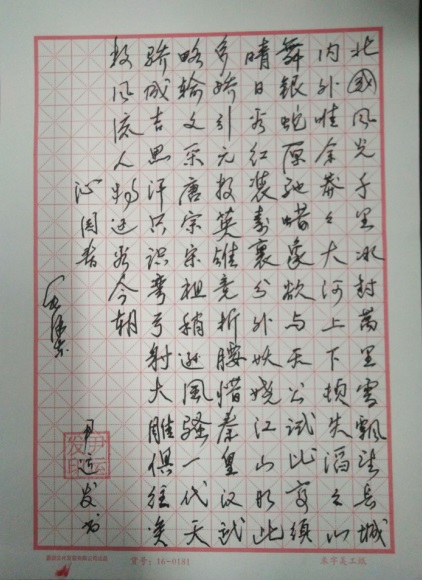 北國风光千里冰封萬里雪飄望長城
内外惟余莽々大河上下顿失滔々山
舞銀蛇原驰蜡象欲与天公試比高須
晴日看红裝素裹分外妖娆江山如此
多娇引无数英雄竞折腰惜秦皇汉武
略输文采唐宗宋祖稍逊風骚一代天
骄成吉思汗只识弯弓射大雕俱往矣
数风流人物还看今朝
沁园春
毛泽东
尹运发书
尹运发印
货号：16-0181